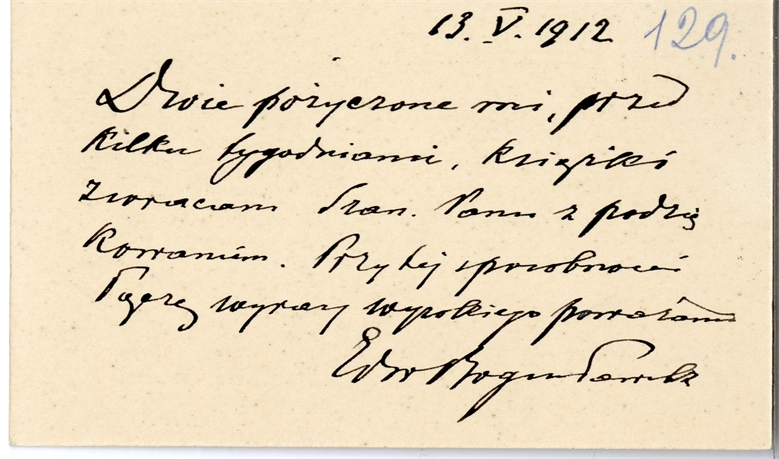 13. V. 1912 129.
Dwie pożyczone mi, przed
kilku tygodniami, książki
zwracam Szan. Panu z podzię
kowaniem. Przy tej sposobności
łączę wyrazy wysokiego poważania
Edw